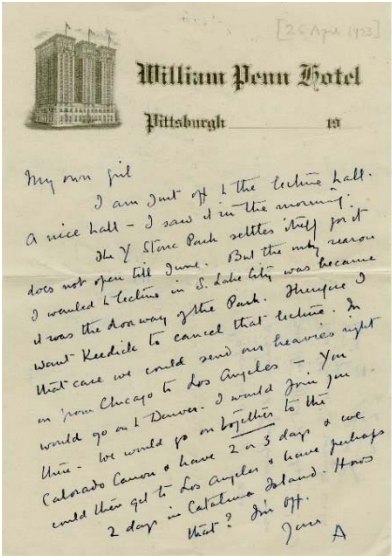 [26 April 1923]
William Penn Hotel
Pittsburgh 19
My own girl
I am just off to the lecture hall.
A nice hall – I saw it in the morning.
The Y Stone Park settles itself for it
does not open till June. But the only reason
I wanted to lecture in S. Lake City was because
it was the doorway of the Park. Hence I
want Keedick to cancel that lecture. In
that case we could send our heavies right
on from Chicago to Los Angeles – You
would go on to Denver. I would join you
there. We would go on together to the
Colorado Canon & have 2 or 3 days & we
could then get to Los Angeles & have perhaps
2 days in Catalina Island. Hows
that? I'm off.
Yours
A